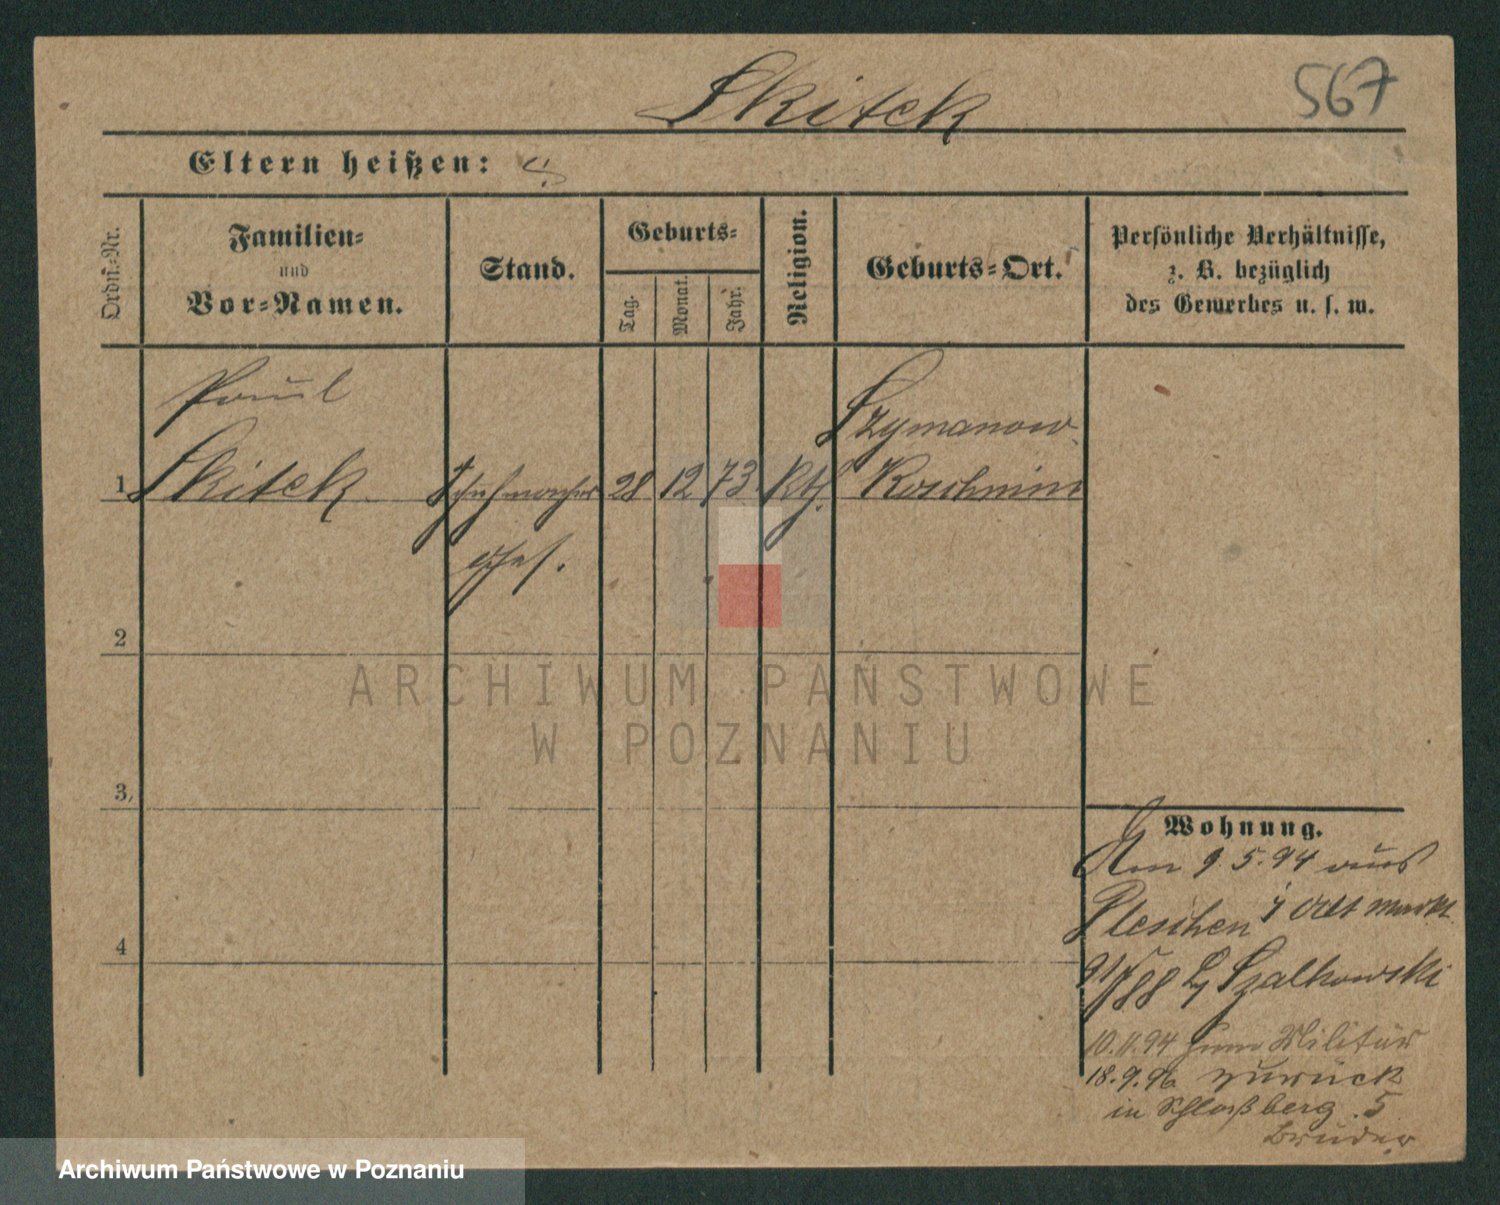 Skitek
567
Eltern heißen:
Ordn.-Nr.
Familien-
und
Vor-Namen.
Stand.
Geburts-
Tag.
Monat.
Jahr.
Religion.
Geburts-Ort.
Persönliche Verhältnisse,
z. B. bezüglich
des Gewerbes u. s. w.
Paul
Szymanow
1 Skitek Schuhmacher 28 12 73 kth. Koschmin
ges.
2
3
4
Wohnung.
Am 9.5.94 aus
Pleschen Alt Markt
Szalkowski
10.11.94 zum Militär
18.9.96 zurück
in Schloßberg 5
Brüder
ARCHIWUM PAŃSTWOWE
W POZNANIU
Archiwum Państwowe w Poznaniu